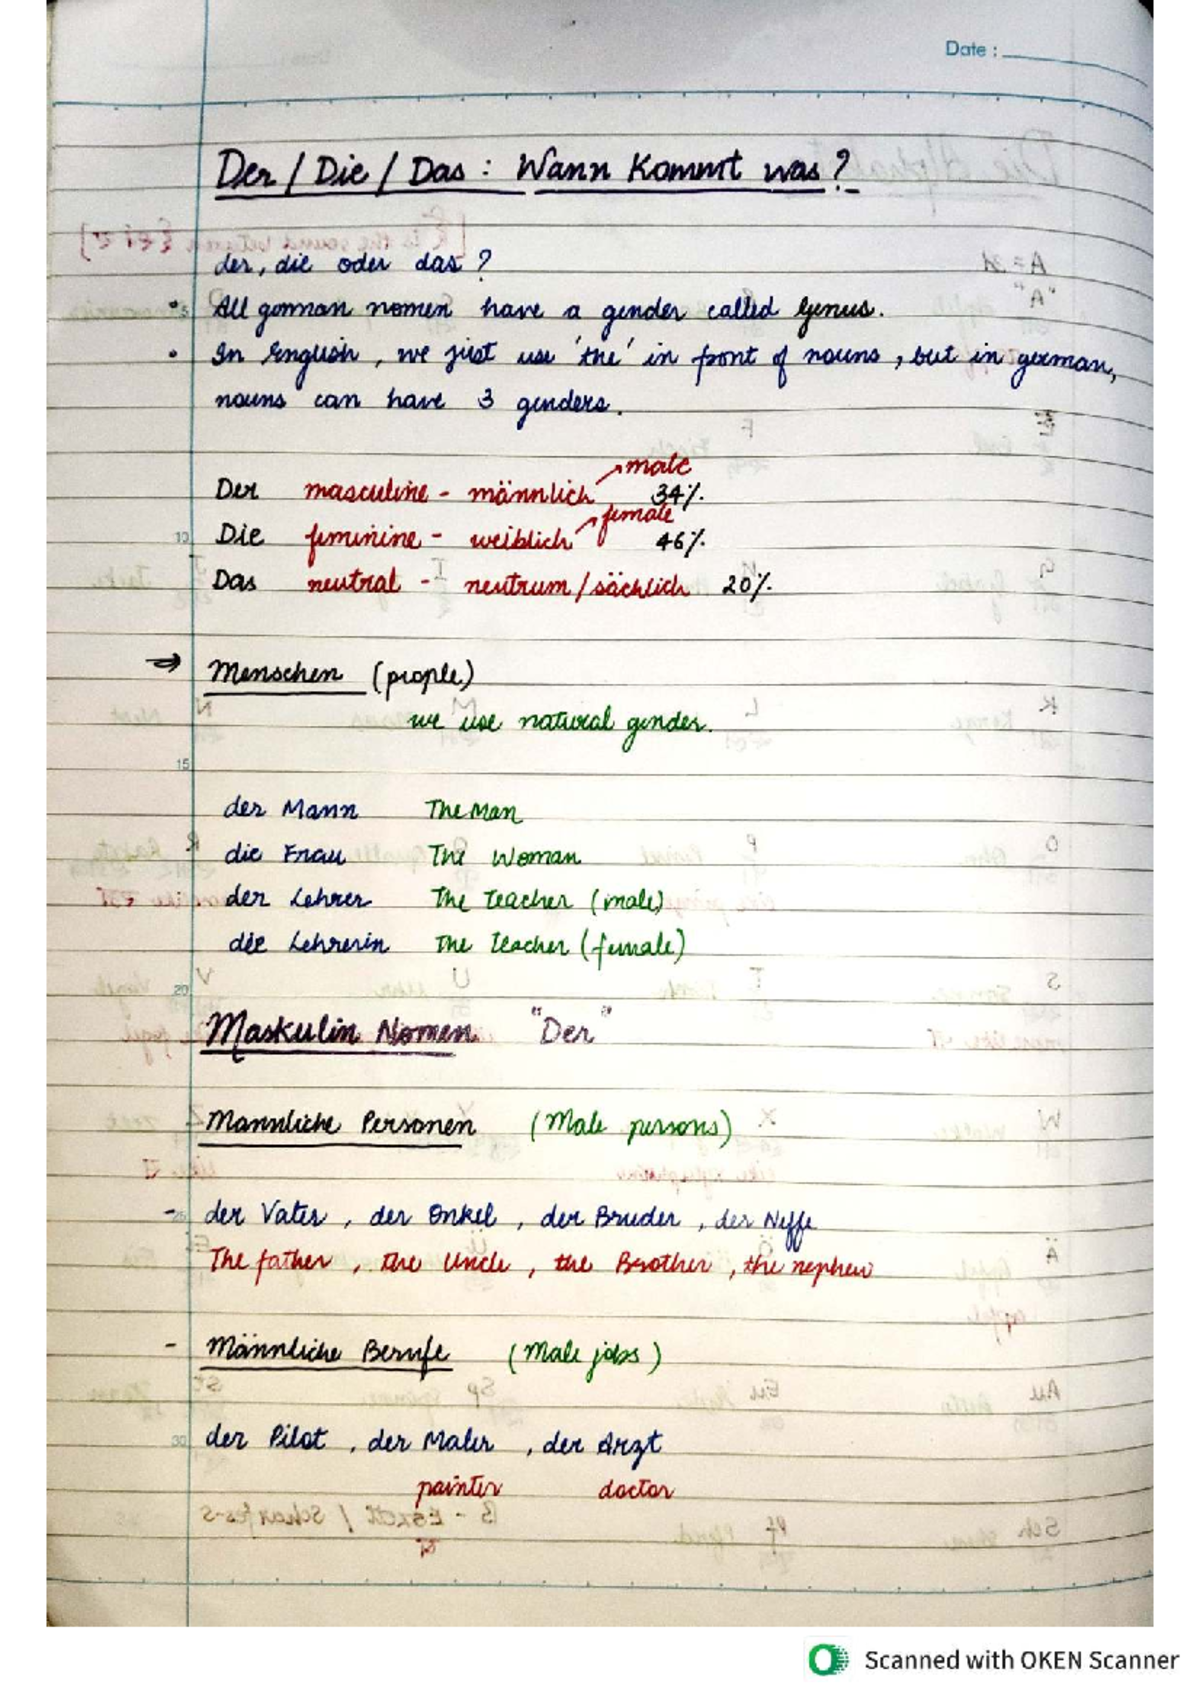 Date :
Der / Die / Das : Wann Kommt was ?
der, die oder das ?
All german nomen have a gender called Genus.
In English, we just use 'the' in front of nouns, but in german,
nouns can have 3 genders.
male
Der masculine - männlich 34%.
female
10 Die feminine - weiblich 46%.
Das neutral - neutrum/sächlich 20%.
→ Menschen (people)
we use natural gender.
15
der Mann The Man
die Frau The Woman
der Lehrer The teacher (male)
die Lehrerin The teacher (female)
20
Maskulin Nomen "Der"
Mannliche Personen (Male persons)
- 25 der Vater, der Onkel, der Bruder, der Neffe
The father, the Uncle, the Brother, the nephew
- Männliche Berufe (Male jobs)
30 der Pilot, der Maler, der Arzt
painter doctor
Scanned with OKEN Scanner